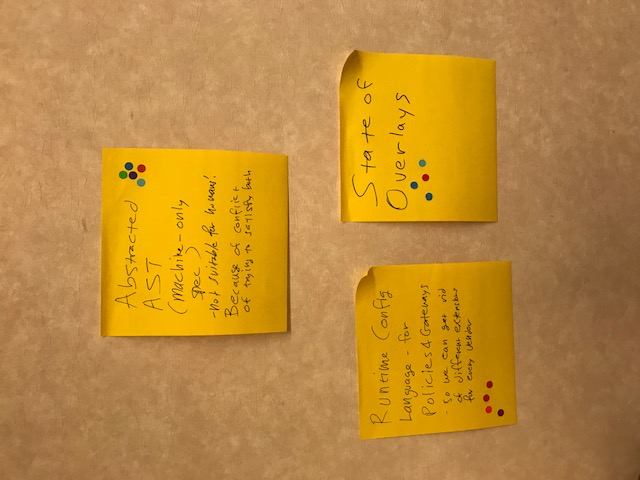 Abstracted
AST
(machine-only
spec)
-not suitable for humans!
Because of conflict
of trying to satisfy both
Runtime Config
Language - for
Policies & Gateways
- so we can get rid
of different extensions
for every vendor
State of
Overlays